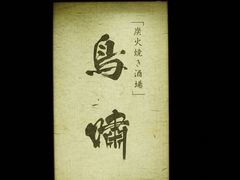 「炭火焼き酒場」
鳥嘯